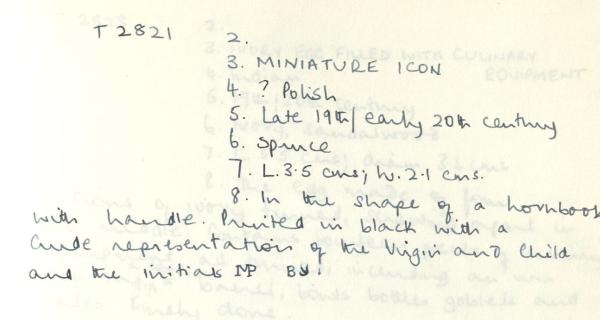 T 2821
2.
3. MINIATURE ICON
4. ? Polish
5. Late 19th/early 20th century
6. Spruce
7. L.3.5 cms; W.2.1 cms.
8. In the shape of a hornbook
with handle. Printed in black with a
crude representation of the Virgin and Child
and the initials MP